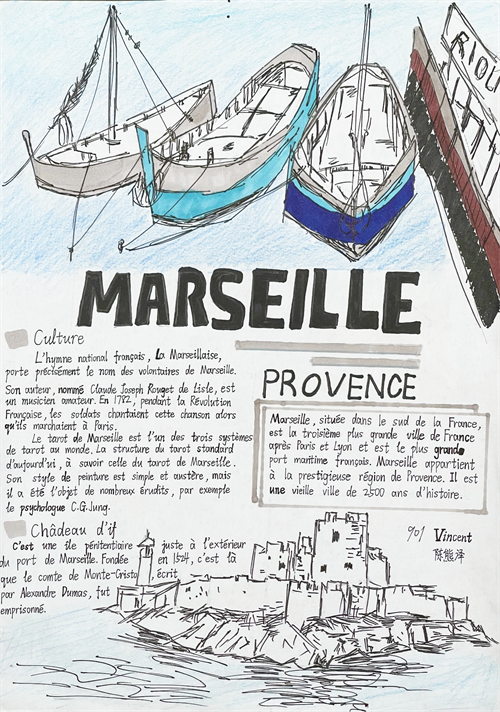 RIOU
MARSEILLE
Culture
L'hymne national français, La Marseillaise,
porte précisément le nom des volontaires de Marseille.
Son auteur, nommé Claude Joseph Rouget de Lisle, est
un musicien amateur. En 1792, pendant la Révolution
Française, les soldats chantaient cette chanson alors
qu'ils marchaient à Paris.
Le tarot de Marseille est l'un des trois systèmes
de tarot au monde. La structure du tarot standard
d'aujourd'hui, à savoir celle du tarot de Marseille.
Son style de peinture est simple et austère, mais
il a été l'objet de nombreux érudits, par exemple
le psychologue C.G.Jung.
PROVENCE
Marseille, située dans le sud de la France,
est la troisième plus grande ville de France
après Paris et Lyon et est le plus grand
port maritime français. Marseille appartient
à la prestigieuse région de Provence. Il est
une vieille ville de 2500 ans d'histoire.
Châdeau d'if
C'est une île pénitentiaire juste à l'extérieur
du port de Marseille. Fondée en 1524, c'est là
que le comte de Monte-Cristo, écrit
par Alexandre Dumas, fut
emprisonné.
901 Vincent
陈熊泽